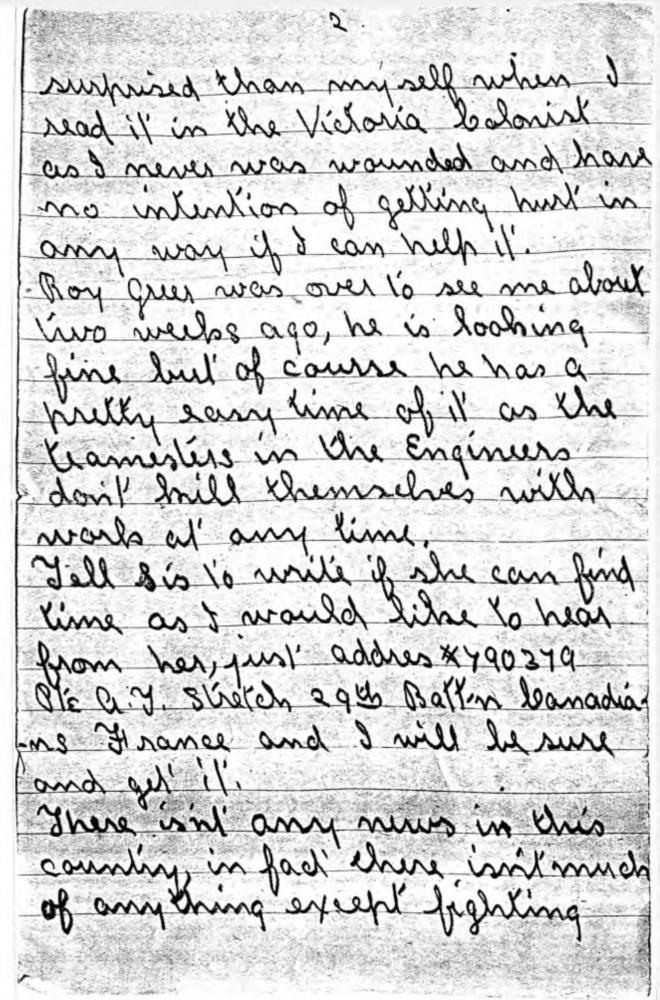 2.
surprised than myself when I
read it in the Victoria Colonist
as I never was wounded and have
no intention of getting hurt in
any way if I can help it.
Roy Greer was over to see me about
two weeks ago, he is looking
fine but of course he has a
pretty easy time of it as the
teamesters in the Engineers
don't kill themselves with
work at any time.
Tell Sis to write if she can find
time as I would like to hear
from her, just addres *790379
Pte A.J. Stretch 29th Batt'n Canadia-
-ns France and I will be sure
and get it.
There isn't any news in this
country, in fact there isn't much
of anything except fighting